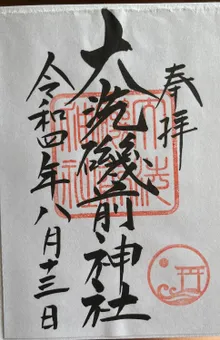 奉拝
大洗磯前神社
令和四年八月十三日